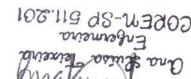 Ana Luisa Teixeira
Enfermeira
COREN-SP 511.201